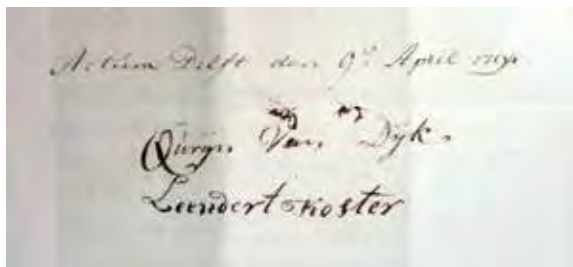 Actum Delft den 9e April
Quryn Van Dyk.
Leendert Koster